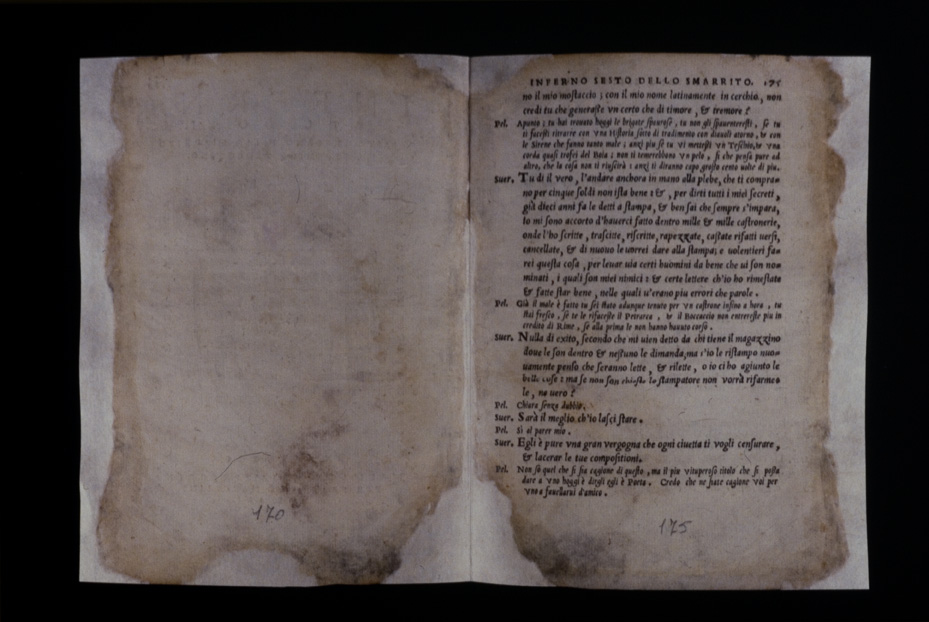 170
INFERNO SESTO DELLO SMARRITO. 175
no il mio mostaccio; con il mio nome latinamente in cerchio, non
credi tu che generaste vn certo che di timore, & tremore?
Pel. Aponto; tu hai trouato hoggi le brigate paurose, tu non gli spauenteresti, se tu
ti facesti ritrarre con vna Historia sotto di tradimento con diauoli atorno, & con
le Sirene che fanno tanto male; anzi piu se tu vi mettesti vn Teschio, & vna
corda quasi trofei del Boia; non ti temerebbono vn pelo, si che pensa pure ad
altro, che la cosa non ti riuscirà: anzi ti diranno capo grosso cento uolte di piu.
Suer. Tu di il vero, l'andare anchora in mano alla plebe, che ti compra-
no per cinque soldi non ista bene: &, per dirti tutti i miei secreti,
già dieci anni fa le detti a stampa, & ben sai che sempre s'impara,
io mi sono accorto d'hauerci fatto dentro mille & mille castronerie,
onde l'ho scritte, trascitte, riscritte, rapezzate, cassate rifatti uersi,
cancellate, & di nuouo le uorrei dare alla stampa; e uolentieri fa-
rei questa cosa, per leuar uia certi huomini da bene che ui son no-
minati, i quali son miei nimici: & certe lettere ch'io ho rimestate
& fatte star bene, nelle quali u'erano piu errori che parole.
Pel. Già il male è fatto tu sei stato adunque tenuto per vn castrone infino a hora, tu
stai fresco, se te le rifacesse il Petrarca, & il Boccaccio non entrereste piu in
credito di Rime, se alla prima le non hanno hauuto corso.
Suer. Nulla di exito, secondo che mi uien detto da chi tiene il magazzino
doue le son dentro & nessuno le dimanda, ma s'io le ristampo nuo-
uamente penso che seranno lette, & rilette, o io ci ho agiunto le
belle cose: ma se non son chieste lo stampatore non vorrà rifarme-
le, no uero?
Pel. Chiara senza dubbio.
Suer. Sarà il meglio ch'io lasci stare.
Pel. Si al parer mio.
Suer. Egli è pure vna gran vergogna che ogni ciuetta ti vogli censurare,
& lacerar le tue compositioni.
Pel. Non sò quel che si sia cagione di questo, ma il piu vituperoso titolo che si possa
dare a vno hoggi è dirgli egli è Poeta. Credo che ne siate cagione voi per
vno a fauellarui d'amico.
175